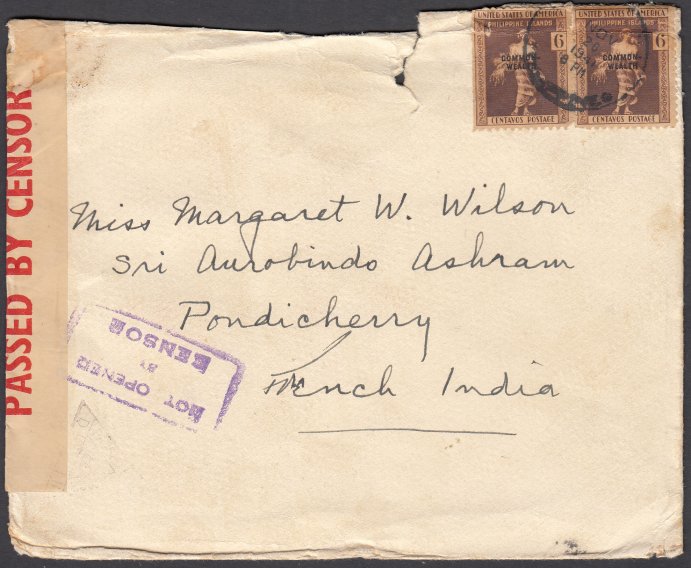 UNITED STATES OF AMERICA
PHILIPPINE ISLANDS
6
COMMON-
WEALTH
CENTAVOS POSTAGE
UNITED STATES OF AMERICA
PHILIPPINE ISLANDS
6
COMMON-
WEALTH
CENTAVOS POSTAGE
8 PM
PASSED BY CENSOR
Miss Margaret W. Wilson
Sri Aurobindo Ashram
Pondicherry
French India
NOT OPENED
BY
CENSOR